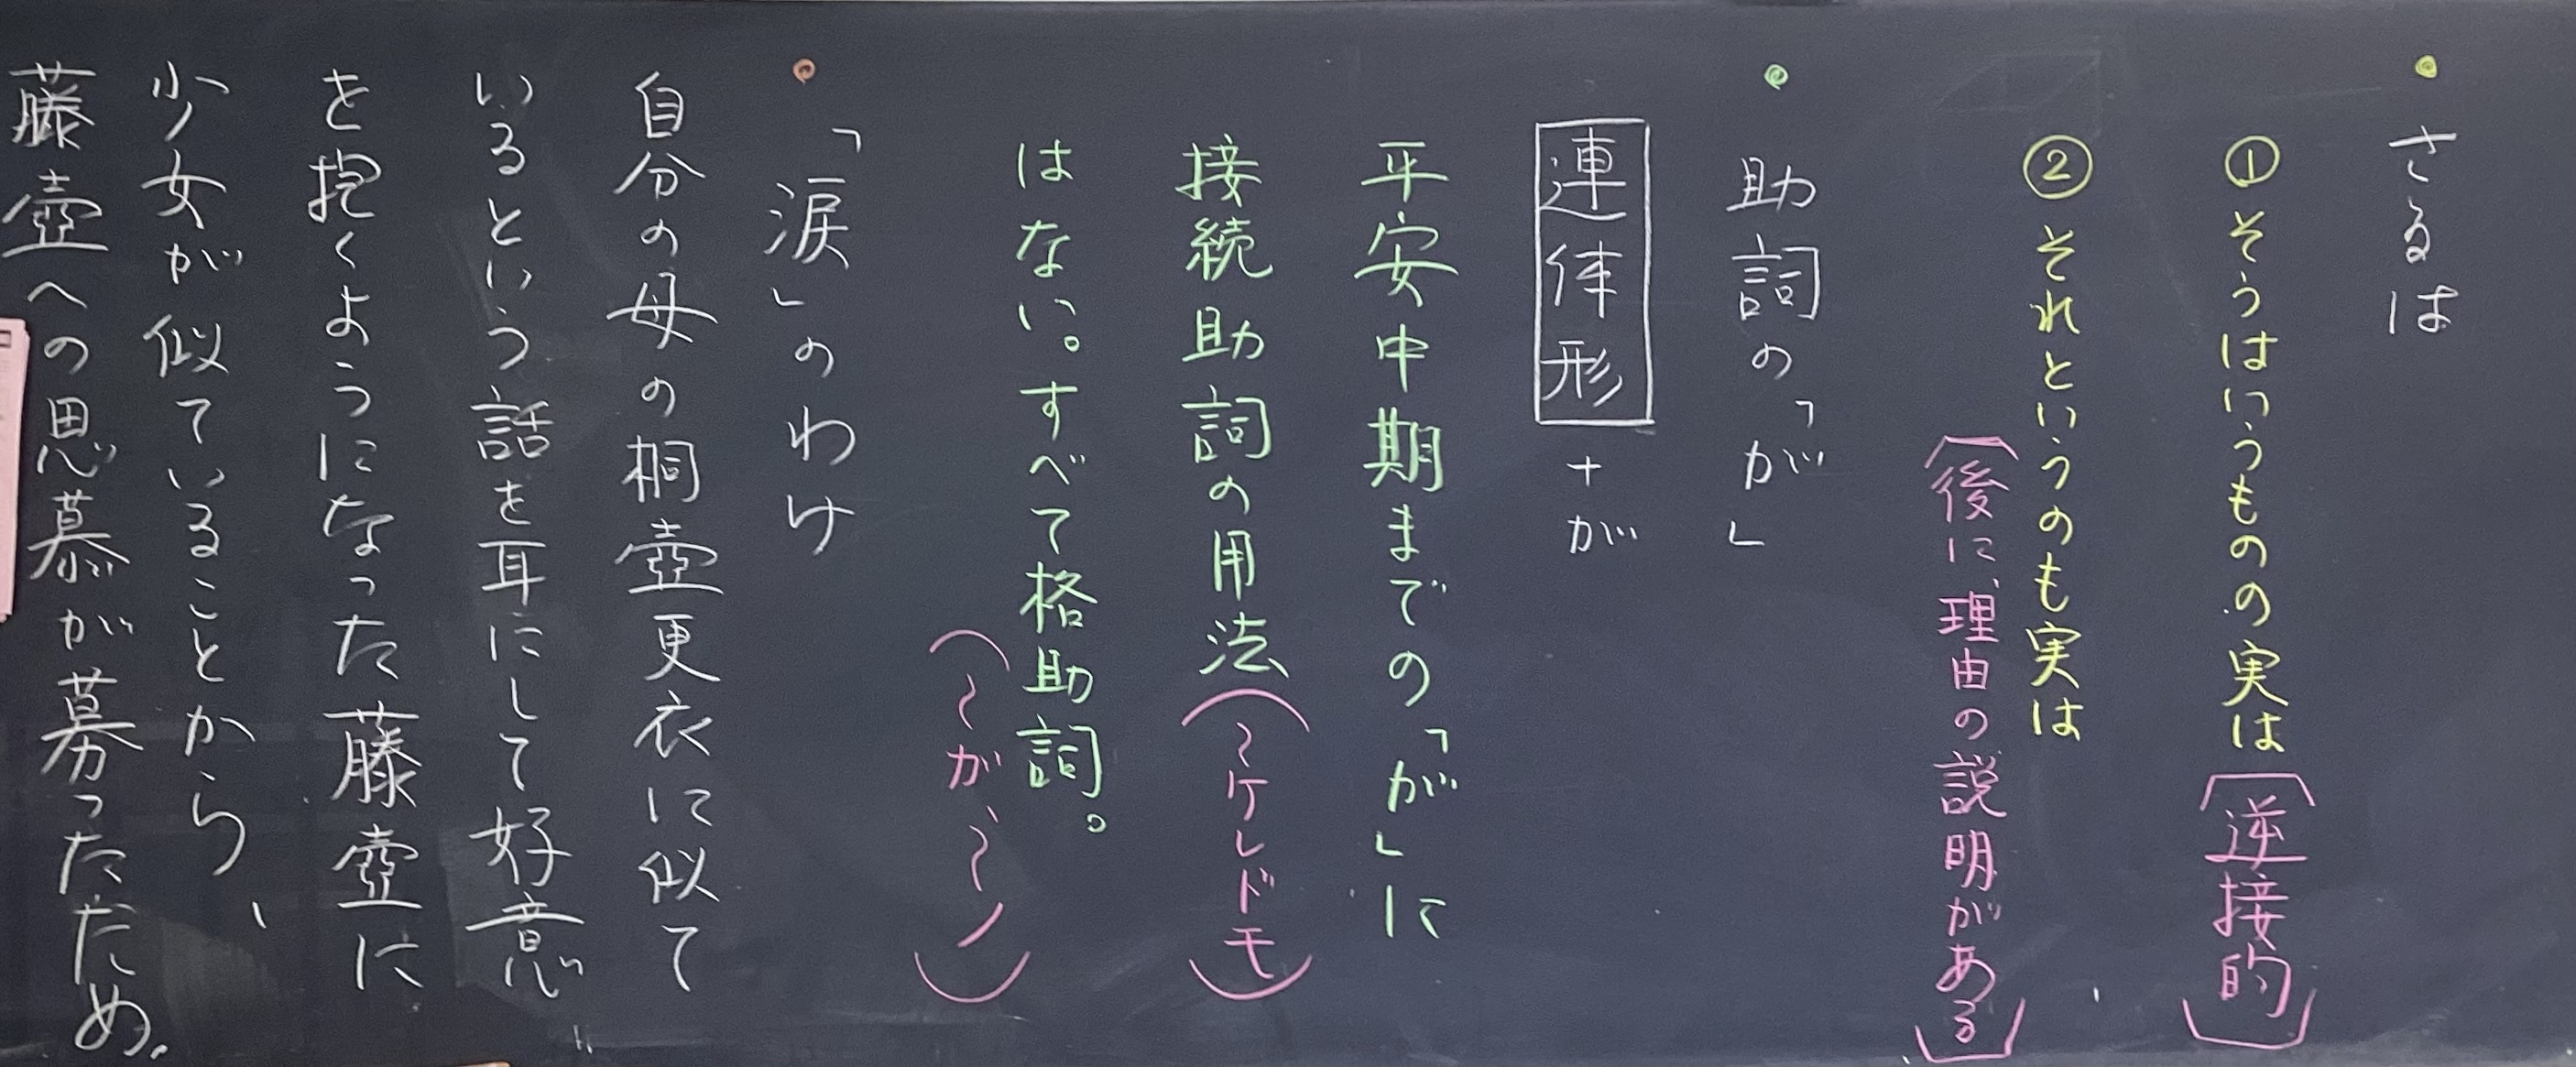 さるは
① そうはいうものの実は〔逆接的〕
② それというのも実は
〔後に、理由の説明がある〕
助詞の「が」
連体形 + が
平安中期までの「が」に
接続助詞の用法(～ケレドモ)
はない。すべて格助詞。
(～が、～ノ)
「涙」のわけ
自分の母の桐壺更衣に似て
いるという話を耳にして好意
を抱くようになった藤壺に
少女が似ていることから、
藤壺への思慕が募ったため。